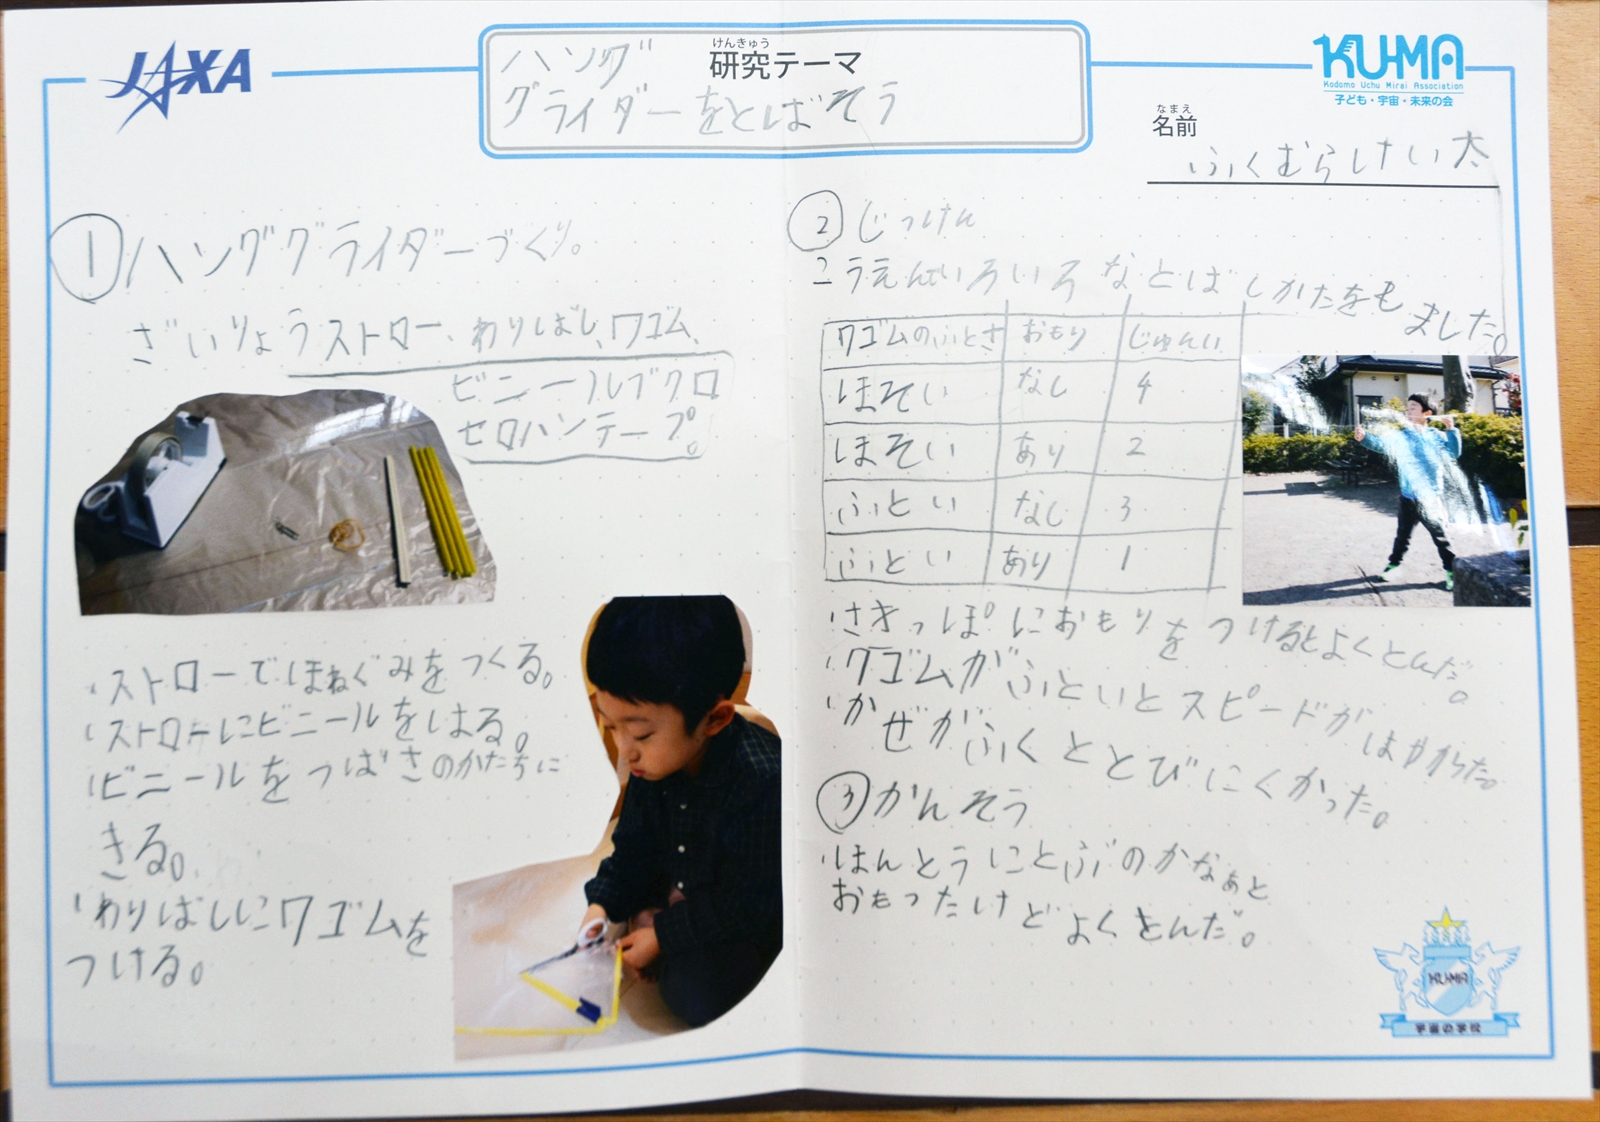 JAXA
けんきゅう
研究テーマ
ハング
グライダーをとばそう
KU-MA
Kodomo Uchu Mirai Association
子ども・宇宙・未来の会
なまえ
名前
ふくむらけい太
① ハンググライダーづくり。
ざいりょうストロー、わりばし、ワゴム、
ビニールブクロ
セロハンテープ。
・ストローでほねぐみをつくる。
・ストローにビニールをはる。
・ビニールをつばさのかたちに
きる。
・わりばしにワゴムを
つける。
② じっけん
こうえんでいろいろなとばしかたをしました。
ワゴムのふとさ おもり じゅんい
ほそい なし 4
ほそい あり 2
ふとい なし 3
ふとい あり 1
・さきっぽにおもりをつけるとよくとんだ。
・ワゴムがふといとスピードがはやかった。
・かぜがふくととびにくかった。
③ かんそう
・ほんとうにとぶのかなぁと
おもったけどよくとんだ。
KU-MA
宇宙の学校